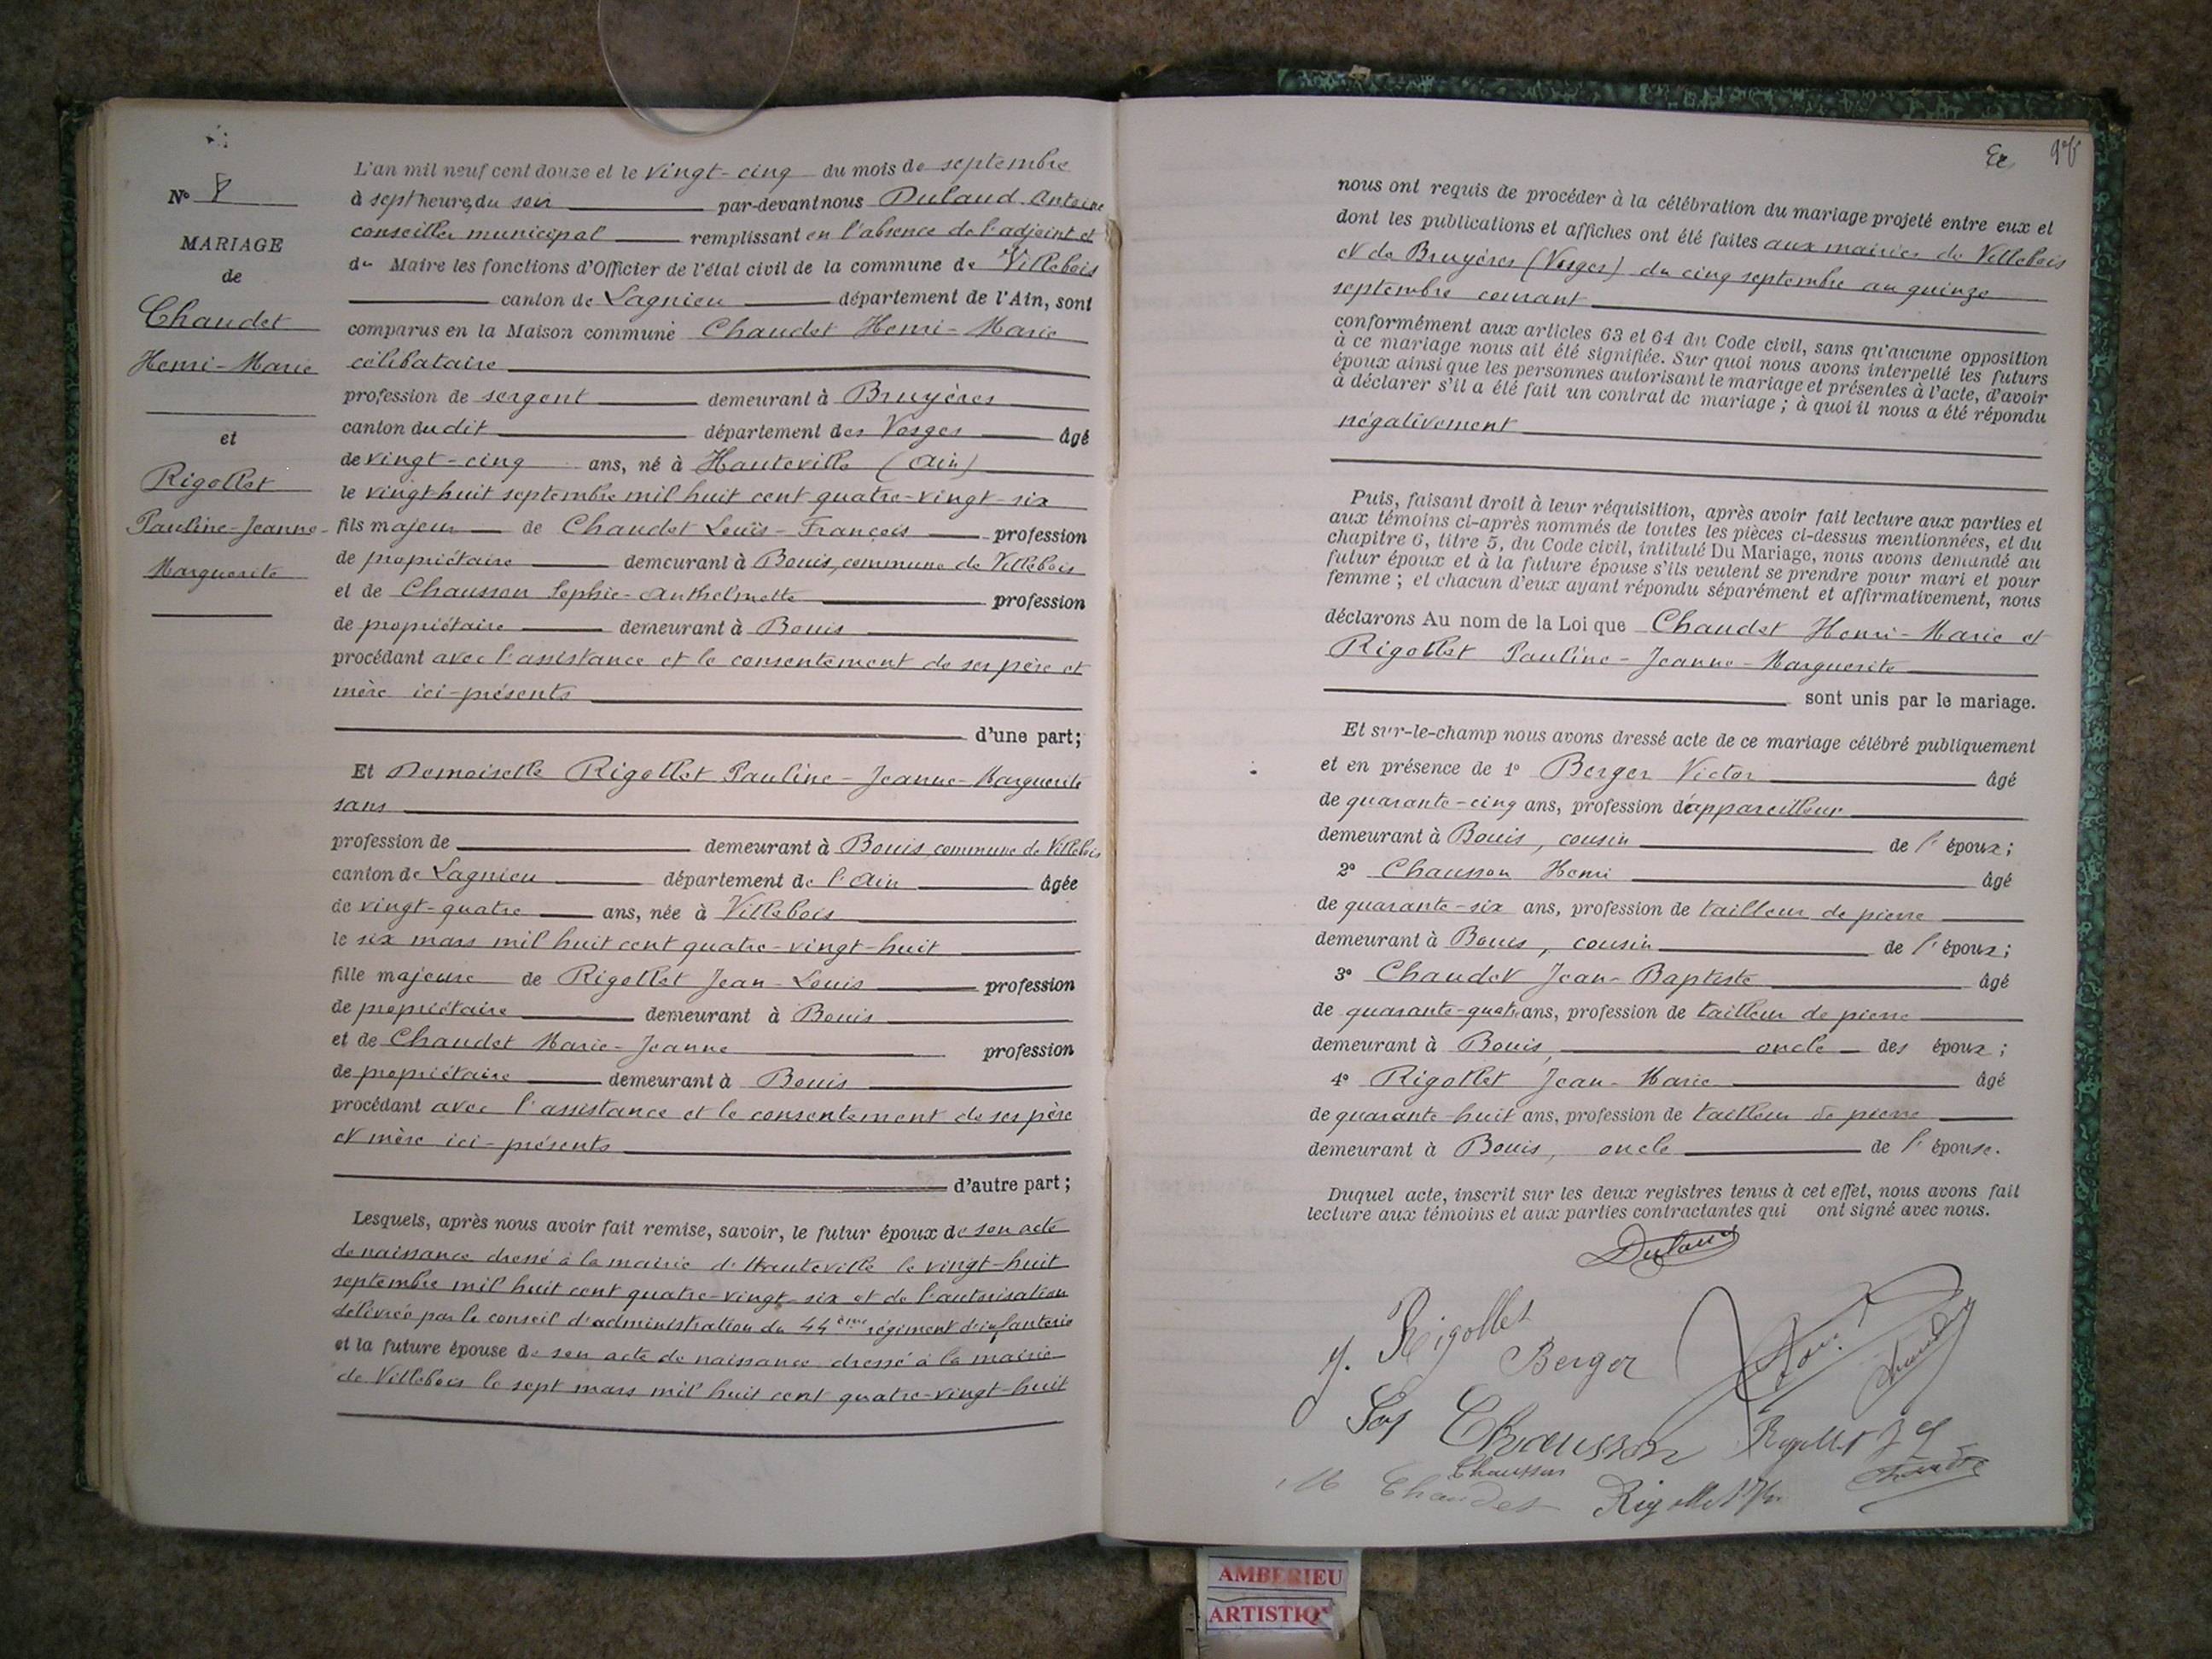 N° 8
MARIAGE
de
Chaudet
Henri-Marie
et
Rigollet
Pauline-Jeanne-
Marguerite
L'an mil neuf cent douze et le vingt-cinq du mois de septembre
à sept heures du soir par-devant nous Dulaud Antoine
conseiller municipal remplissant en l'absence de l'adjoint et
du Maire les fonctions d'Officier de l'état civil de la commune de Villebois
canton de Lagnieu département de l'Ain, sont
comparus en la Maison commune Chaudet Henri-Marie
célibataire
profession de sergent demeurant à Bruyères
canton du dit département des Vosges âgé
de vingt-cinq ans, né à Hauteville (Ain)
le vingt-huit septembre mil huit cent quatre-vingt-six
fils majeur de Chaudet Louis-François profession
de propriétaire demeurant à Bouis, commune de Villebois
et de Chausson Sophie-Anthelmette profession
de propriétaire demeurant à Bouis
procédant avec l'assistance et le consentement de ses père et
mère ici-présents
d'une part;
Et Demoiselle Rigollet Pauline-Jeanne-Marguerite
sans
profession de demeurant à Bouis, commune de Villebois
canton de Lagnieu département de l'Ain âgée
de vingt-quatre ans, née à Villebois
le six mars mil huit cent quatre-vingt-huit
fille majeure de Rigollet Jean-Louis profession
de propriétaire demeurant à Bouis
et de Chaudet Marie-Jeanne profession
de propriétaire demeurant à Bouis
procédant avec l'assistance et le consentement de ses père
et mère ici-présents
d'autre part;
Lesquels, après nous avoir fait remise, savoir, le futur époux de son acte
de naissance dressé à la mairie d'Hauteville le vingt-huit
septembre mil huit cent quatre-vingt-six et de l'autorisation
délivrée par le conseil d'administration du 44ème régiment d'infanterie
et la future épouse de son acte de naissance dressé à la mairie
de Villebois le sept mars mil huit cent quatre-vingt-huit
nous ont requis de procéder à la célébration du mariage projeté entre eux et
dont les publications et affiches ont été faites aux mairies de Villebois
et de Bruyères (Vosges) du cinq septembre au quinze
septembre courant
conformément aux articles 63 et 64 du Code civil, sans qu'aucune opposition
à ce mariage nous ait été signifiée. Sur quoi nous avons interpellé les futurs
époux ainsi que les personnes autorisant le mariage et présentes à l'acte, d'avoir
à déclarer s'il a été fait un contrat de mariage; à quoi il nous a été répondu
négativement
Puis, faisant droit à leur réquisition, après avoir fait lecture aux parties et
aux témoins ci-après nommés de toutes les pièces ci-dessus mentionnées, et du
chapitre 6, titre 5, du Code civil, intitulé Du Mariage, nous avons demandé au
futur époux et à la future épouse s'ils veulent se prendre pour mari et pour
femme; et chacun d'eux ayant répondu séparément et affirmativement, nous
déclarons Au nom de la Loi que Chaudet Henri-Marie et
Rigollet Pauline-Jeanne-Marguerite
sont unis par le mariage.
Et sur-le-champ nous avons dressé acte de ce mariage célébré publiquement
et en présence de 1° Berger Victor âgé
de quarante-cinq ans, profession d'appareilleur
demeurant à Bouis, cousin de l'époux;
2° Chausson Henri âgé
de quarante-six ans, profession de tailleur de pierre
demeurant à Bouis, cousin de l'époux;
3° Chaudet Jean-Baptiste âgé
de quarante-quatre ans, profession de tailleur de pierre
demeurant à Bouis, oncle des époux;
4° Rigollet Jean-Marie âgé
de quarante-huit ans, profession de tailleur de pierre
demeurant à Bouis, oncle de l'épouse.
Duquel acte, inscrit sur les deux registres tenus à cet effet, nous avons fait
lecture aux témoins et aux parties contractantes qui ont signé avec nous.
Dulaud
J. Rigollet
Berger
Chaudet
Chausson
Rigollet
Chausson
Chaudet
Rigollet
Chaudet
AMBERIEU
ARTISTIQ